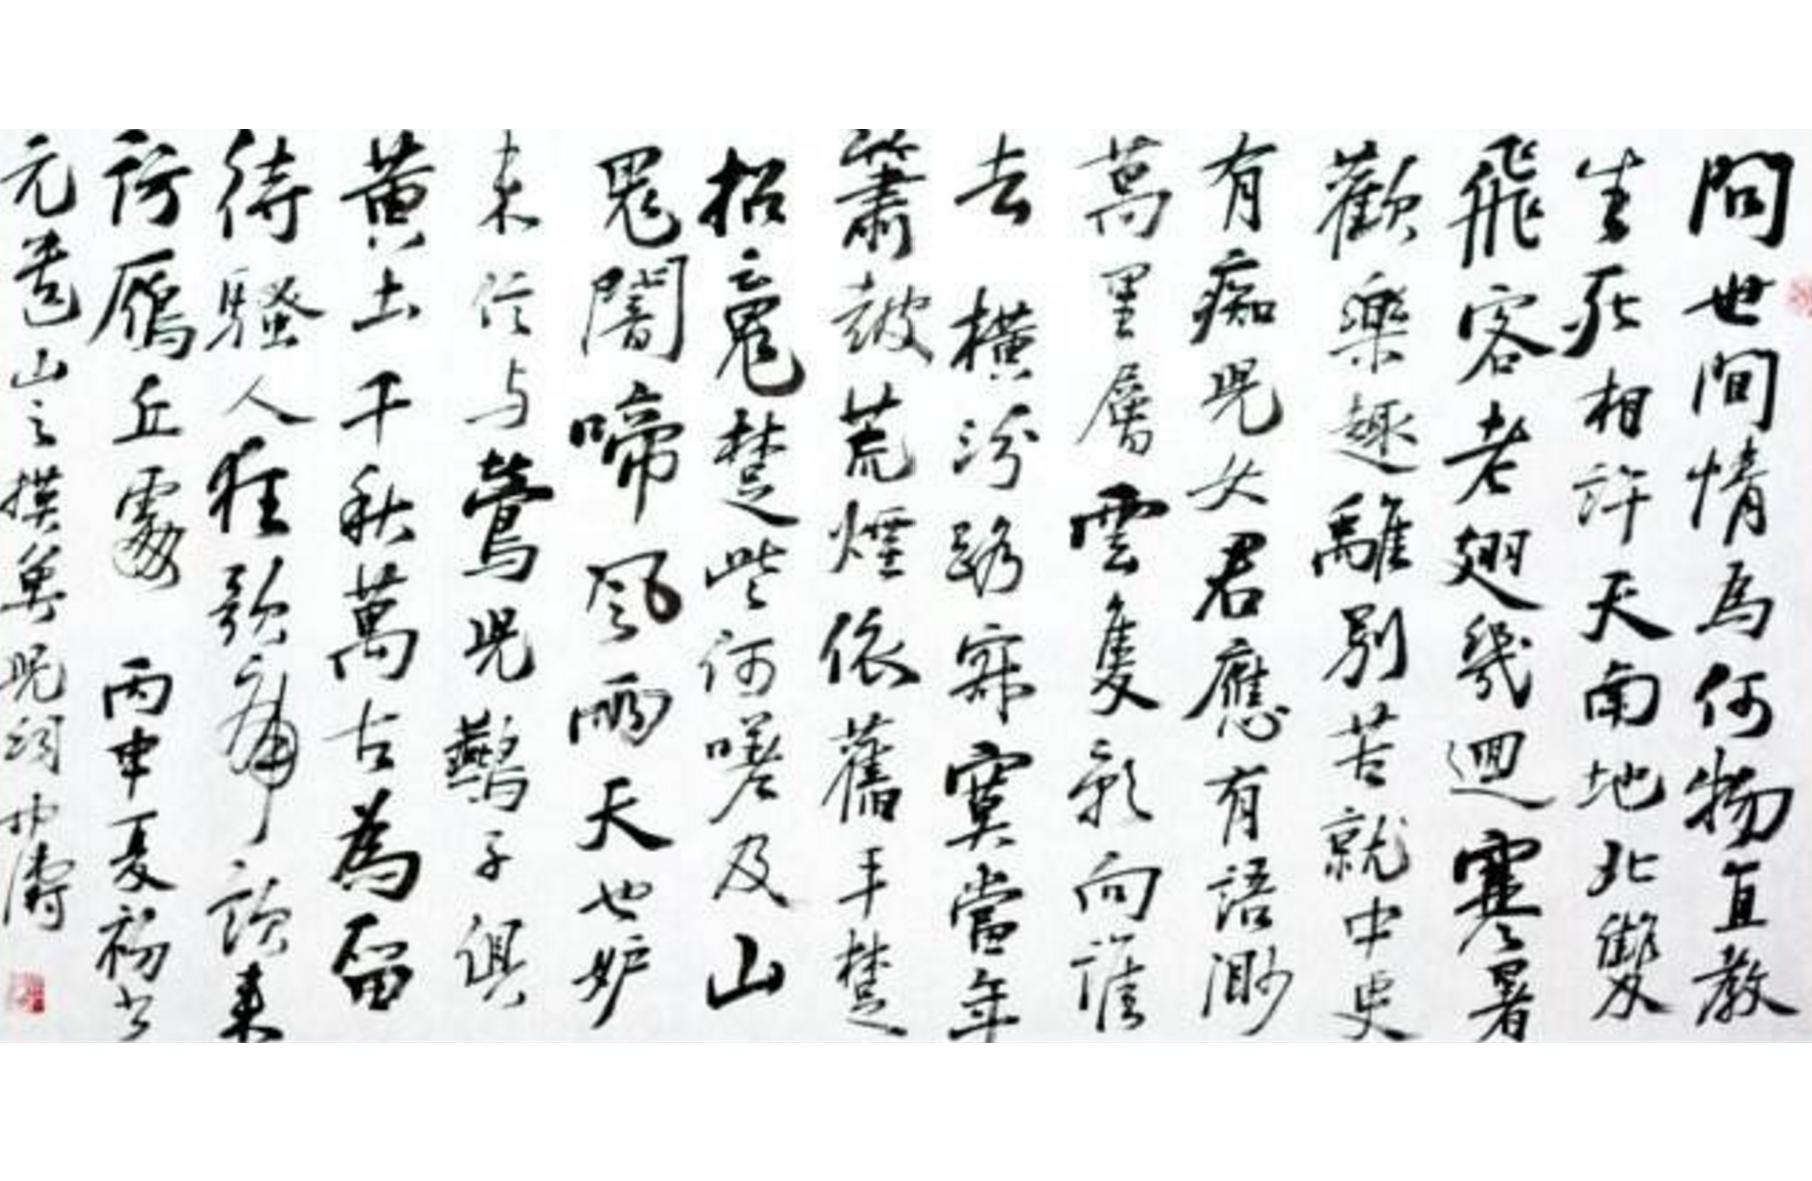 問世間情為何物直教
生死相許天南地北雙
飛客老翅幾迴寒暑
歡樂趣離別苦就中更
有痴兒女君應有語渺
萬里層雲隻影向誰
去橫汾路寂寞當年
簫鼓荒煙依舊平楚
招魂楚些何嗟及山
鬼闇啼風雨天也妒
未信与鶯兒鷰子俱
黃土千秋萬古為留
待騷人狂歌痛飲來
訪鴈丘處 丙申夏初書
元遺山之摸魚兒詞